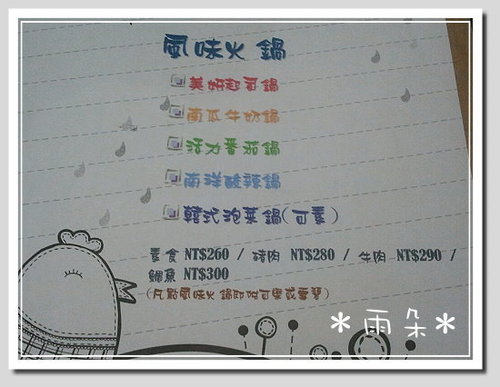 風味火鍋
美好起司鍋
南瓜牛奶鍋
活力番茄鍋
南洋酸辣鍋
韓式泡菜鍋(可素)
素食 NT$260 / 豬肉 NT$280 / 牛肉 NT$290 /
鯛魚 NT$300
(凡點風味火鍋即附可樂或雪碧)
＊雨朵＊